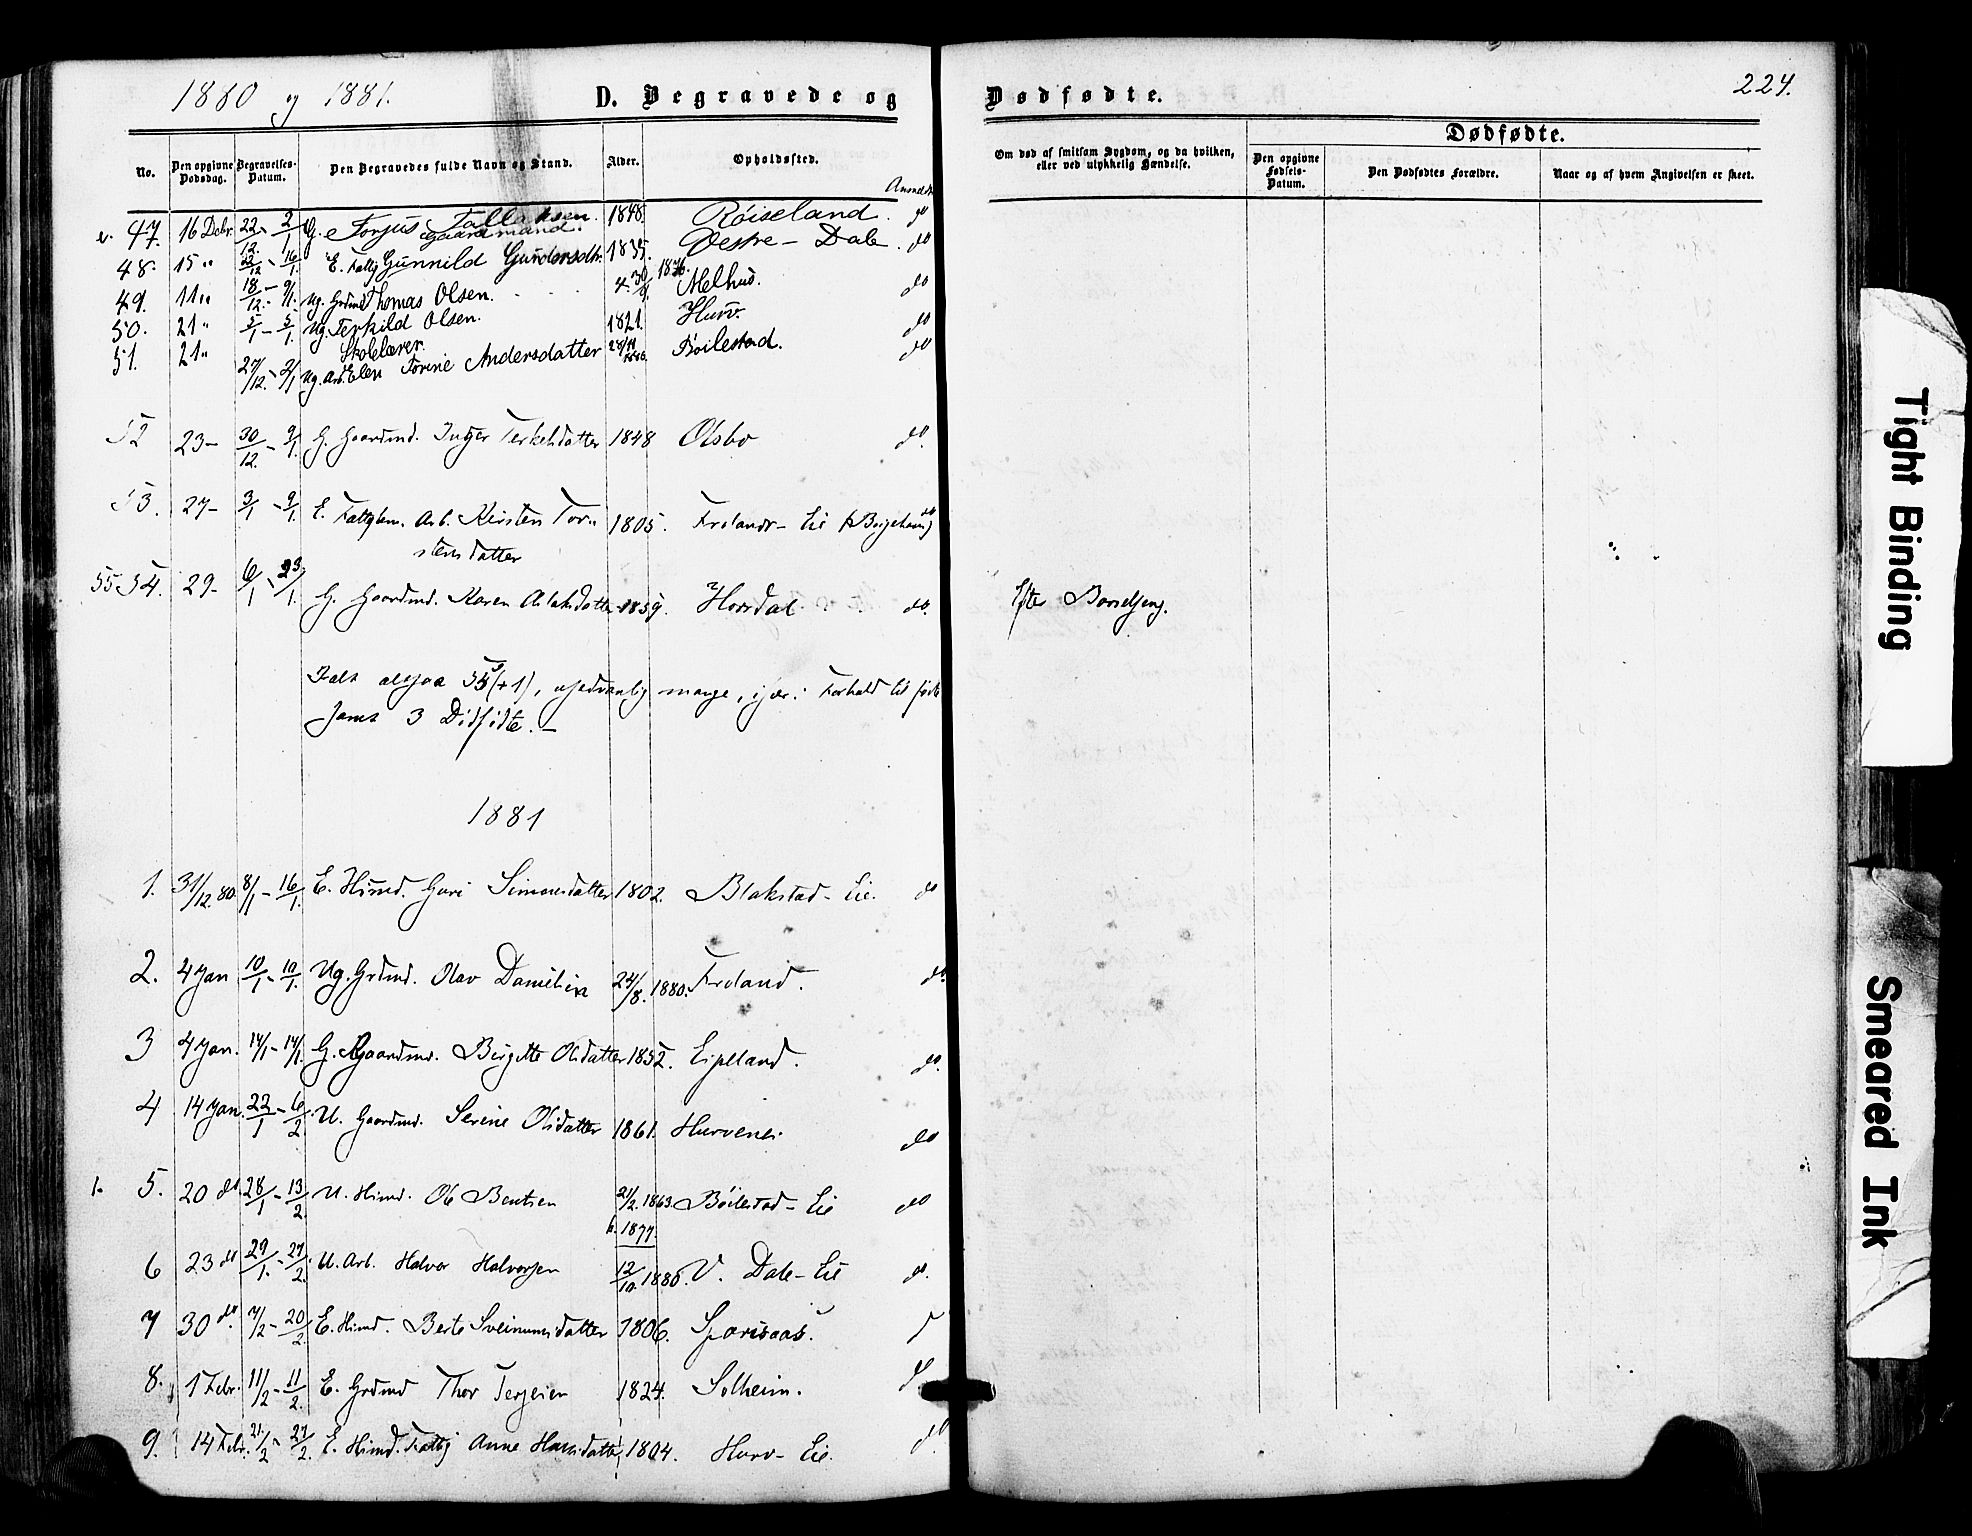 1880 og 1881.
D. Begravede og
Dødfødte.
224.
No.
Den opgivne Dødsdag.
Begravelses-Datum.
Den Begravedes fulde Navn og Stand.
Alder.
Opholdssted.
Om død af smitsom Sygdom, og da hvilken, eller ved ulykkelig Hændelse.
Dødfødte.
Den opgivne Fødsels-Datum.
Den Dødfødtes Forældre.
Naar og af hvem Angivelsen er skeet.
47. 16 Debr. 22/12 - 2/1 G. Torjus Tallaksen. 1848 Röiseland. do
Gaardmand.
48. 15 " 22/12 - 16/1. E. Fattig Gunnild Gundersdtr. 1835. Vestre - Dale. do
49. 11 " 18/12. - 9/1. Ug. Grdmd Thomas Olsen. 1876. Melhus. do
50. 21 " 5/1 - 5/1. Ug. Terkild Olsen. 1821. Hurv. do
Skolelærer.
51. 21 " 27/12. - 2/1 Ug. Arb. Elen Torine Andersdatter Böilestad. do
52 23 - 30/12. - 9/1. G. Gaardmd. Inger Terkelsdatter 1848 Olsbo do.
53. 27 - 3/1 - 9/1. E. Fattiglem. Arb. Kirsten Tor- 1805. Frolands - Eie do
stensdatter
55 54. 29 - 6/1 - 23/1. G. Gaardmd. Karen Aslaksdatter 1859. Hovsdal do. Efter Barselseng.
Ialt altsaa 55 (+1), usedvanlig mange, især i Forhold til fødte
samt 3 Dödfödte. -
1881
1. 31/12 80. 8/1 - 16/1. E. Hsmd. Guri Simonsdatter 1802. Blakstad - Eie. do
2. 4 Jan 10/1 - 10/1. Ug. Grdmd. Olav Danielsen 24/8. 1880. Froland. do.
3 4 Jan. 14/1 - 14/1. G. Gaardmd. Birgitte Olsdatter 1852. Eipeland. do.
4 14 Jan. 22/1 - 6/2 U. Gaardmd. Serine Olsdatter 1861. Hurvenes do
1. 5. 20 do 28/1 - 13/2. U. Hsmd. Ole Bentsen 21/2. 1863. Böilestad - Eie do
k. 1877.
6 23 do 29/1. - 27/2. U. Arb. Halvor Halvorsen 12/10. 1880. V. Dale - Eie do.
7 30 do. 7/2 - 20/2. E. Hsmd. Berte Sveinunsdatter 1806. Sparsaas.
8. 1 Febr. 11/2 - 11/2. E. Grdmd Thor Terjesen 1824. Solheim. do
9. 14 Febr. 21/2 - 27/2. E. Hsmd. Fattig Anne Hansdatter 1804. Hurv - Eie. do.
Tight Binding
Smeared Ink